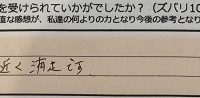 を受けられていかがでしたか？（ズバリ10
直な感想が、私達の何よりの力となり今後の参考となり
近く満足です